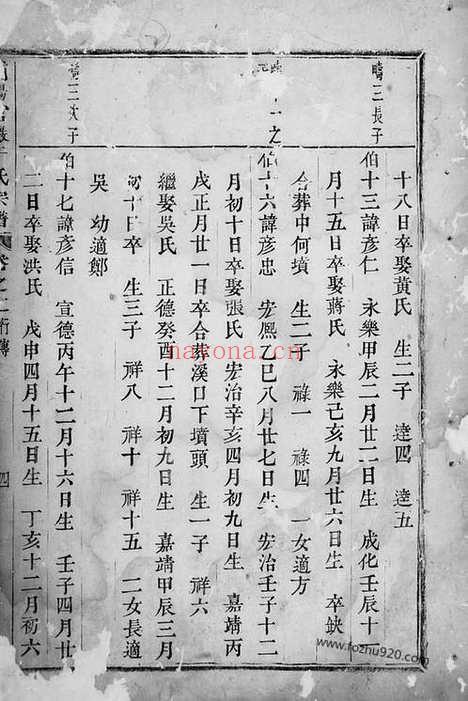 十八日卒娶黃氏 生二子 達四 達五
疇三長子
伯十三諱彥仁 永樂甲辰二月廿二日生 成化壬辰十一
月十五日卒娶蔣氏 永樂己亥九月廿六日生 卒缺
合葬中何墳 生二子 祿一 祿四 一女適方
之
伯十六諱彥忠 宏熙乙巳八月廿七日生 宏治壬子十二
月初十日卒娶張氏 宏治辛亥四月初九日生 嘉靖丙
戌正月廿一日卒合葬溪口下墳頭 生一子 祥六
繼娶吳氏 正德癸酉十二月初九日生 嘉靖甲辰三月
初十日卒 生三子 祥八 祥十 祥十五 二女長適
吳 幼適鄭
三次子
伯十七諱彥信 宣德丙午十二月十六日生 壬子四月廿
二日卒娶洪氏 戊申四月十五日生 丁亥十二月初六
氏宗譜 卷之二 行傳 四
nayona.cn
www.fozhu920.com